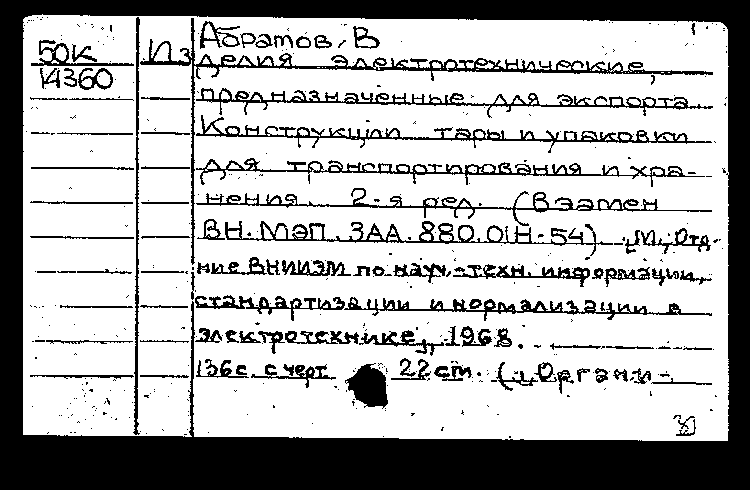 Абратов, В
50К Из
делия электротехнические,
14360
предназначенные для экспорта
Конструкции тары и упаковки
для транспортирования и хра-
нения. 2-я ред. (Взамен
ВН. МЭП. ЗАА. 880.01Н-54). „М.„ Отд-
ние ВНИИЭМ по науч.-техн. информации,
стандартизации и нормализации в
электротехнике„ 1968.
136с. с черт 22 cm. („Органи-